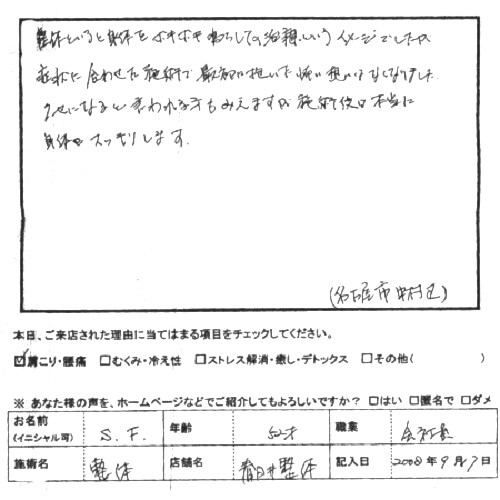 整体というと身体をボキボキ鳴らしての治療というイメージでしたが
症状に合わせた施術で最初に抱いた怖い想いはなくなりました
クセになると言われる方もみえますが施術後は本当に
身体がスッキリします。
(名古屋市中村区)
本日、ご来店された理由に当てはまる項目をチェックしてください。
☑肩こり・腰痛 □むくみ・冷え性 □ストレス解消・癒し・デトックス □その他( )
※ あなた様の声を、ホームページなどでご紹介してもよろしいですか? □はい □匿名で □ダメ
お名前 (イニシャル可) S.F. 年齢 50才 職業 会社員
施術名 整体 店舗名 春日井整体 記入日 2008年9月7日